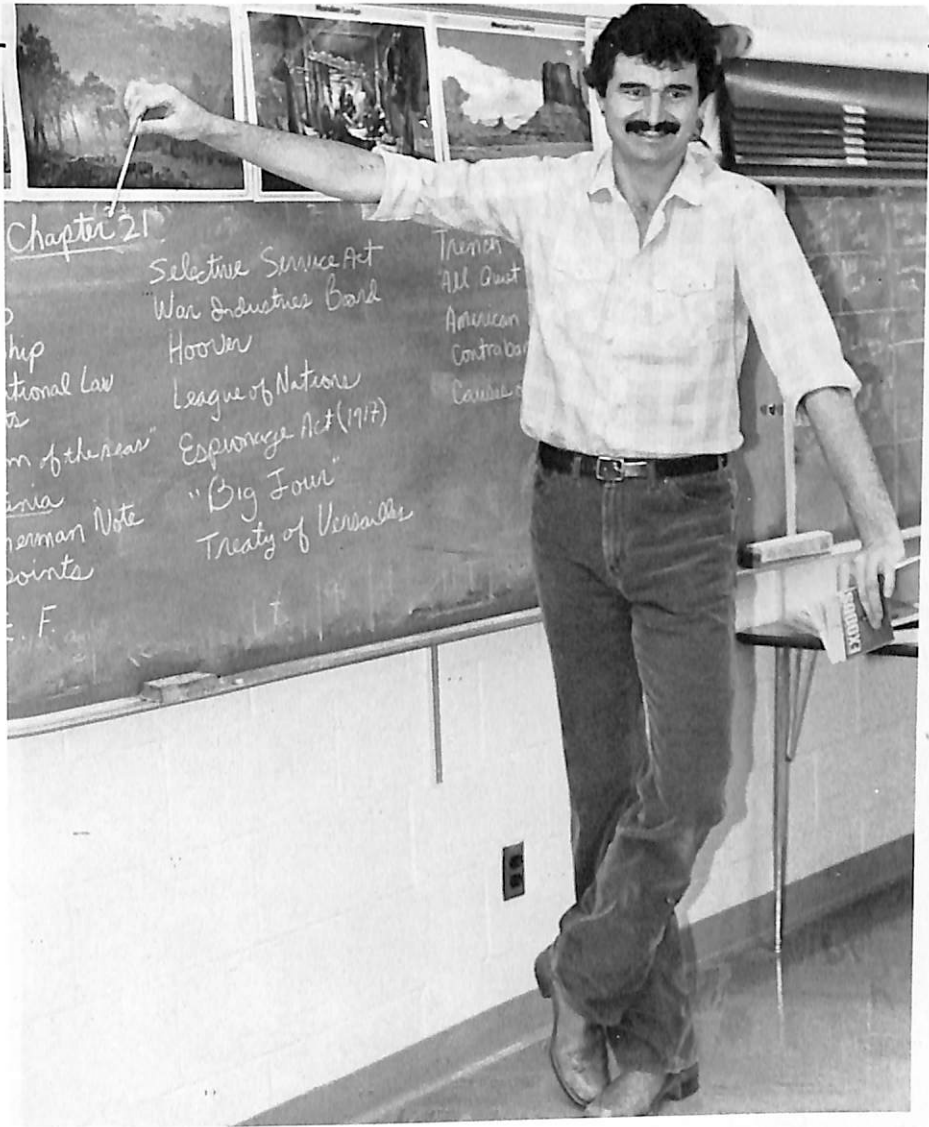 Chapter 21
hip
ational Law
ts
m of the seas"
ania
merman Note
Points
E. F.
Selective Service Act
War Industries Board
Hoover
League of Nations
Espionage Act (1917)
"Big Four"
Treaty of Versailles
Trench
"All Quiet
American
Contraban
Causes o